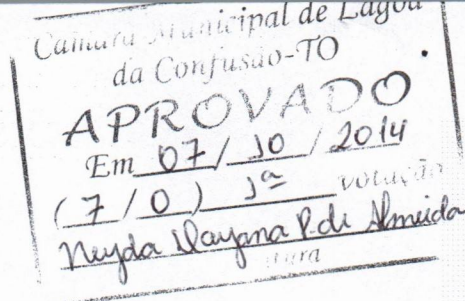 Camara Municipal de Lagoa
da Confusão-TO
APROVADO
Em 07/10/2014
(7/0) 1ª votação
Neyda Dayana P. de Almeida